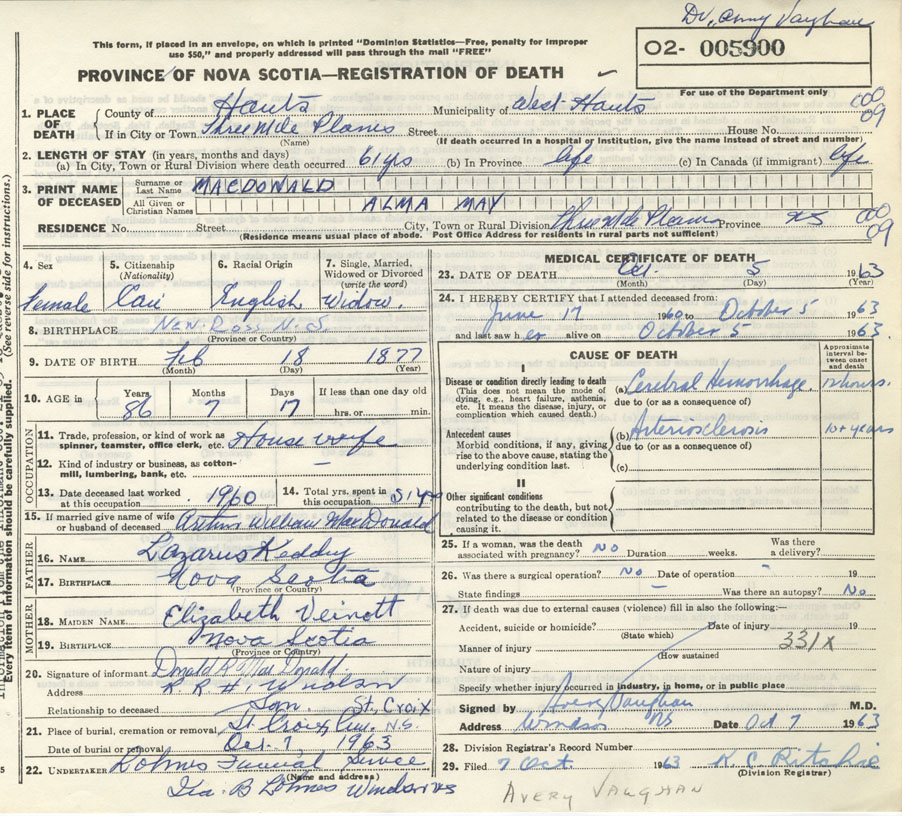 Dr. Avery Vaughan
This form, if placed in an envelope, on which is printed "Dominion Statistics—Free, penalty for improper
use $50," and properly addressed will pass through the mail "FREE"
02- 005900
PROVINCE OF NOVA SCOTIA—REGISTRATION OF DEATH
For use of the Department only
1. PLACE OF DEATH County of Hants Municipality of West Hants 000
If in City or Town Three Mile Plains Street House No. 09
(Name) (If death occurred in a hospital or institution, give the name instead of street and number)
2. LENGTH OF STAY (in years, months and days)
(a) In City, Town or Rural Division where death occurred 61 yrs (b) In Province life (c) In Canada (if immigrant) life
3. PRINT NAME OF DECEASED Surname or Last Name MACDONALD
All Given or Christian Names ALMA MAY
RESIDENCE No. Street City, Town or Rural Division Three Mile Plains Province NS 000 09
(Residence means usual place of abode. Post Office Address for residents in rural parts not sufficient)
(See reverse side for instructions.)
Every item of information should be carefully supplied.
4. Sex 5. Citizenship (Nationality) 6. Racial Origin 7. Single, Married, Widowed or Divorced (write the word)
Female Can English Widow.
8. BIRTHPLACE New Ross N.S.
(Province or Country)
9. DATE OF BIRTH Feb 18 1877
(Month) (Day) (Year)
10. AGE in Years Months Days If less than one day old
86 7 17 hrs. or min.
OCCUPATION
11. Trade, profession, or kind of work as spinner, teamster, office clerk, etc. House wife
12. Kind of industry or business, as cotton-mill, lumbering, bank, etc. —
13. Date deceased last worked at this occupation 1960 14. Total yrs. spent in this occupation 51 yrs
15. If married give name of wife or husband of deceased Arthur William MacDonald
FATHER
16. NAME Lazarus Keddy
17. BIRTHPLACE Nova Scotia
(Province or Country)
MOTHER
18. MAIDEN NAME Elizabeth Veinott
19. BIRTHPLACE Nova Scotia
(Province or Country)
20. Signature of informant Donald R. MacDonald
Address R.R. #1, Windsor
Relationship to deceased Son. St. Croix
21. Place of burial, cremation or removal St. Croix Cem. N.S.
Date of burial or removal Oct. 7, 1963
22. UNDERTAKER Lohnes Funeral Service
(Name and address)
Ira B Lohnes Windsor NS
MEDICAL CERTIFICATE OF DEATH
23. DATE OF DEATH Oct. 5 1963
(Month) (Day) (Year)
24. I HEREBY CERTIFY that I attended deceased from:
June 17 1960 to October 5 1963
and last saw her alive on October 5 1963
CAUSE OF DEATH
Approximate interval between onset and death
I
Disease or condition directly leading to death (a) Cerebral Hemorrhage 12 hours.
(This does not mean the mode of dying, e.g., heart failure, asthenia, etc. It means the disease, injury, or complication which caused death.)
due to (or as a consequence of)
Antecedent causes (b) Arteriosclerosis 10+ years
Morbid conditions, if any, giving rise to the above cause, stating the underlying condition last.
due to (or as a consequence of)
(c)
II
Other significant conditions
contributing to the death, but not related to the disease or condition causing it.
25. If a woman, was the death associated with pregnancy? No Duration weeks. Was there a delivery?
26. Was there a surgical operation? No Date of operation - 19
State findings — Was there an autopsy? No
27. If death was due to external causes (violence) fill in also the following:—
Accident, suicide or homicide? Date of injury 19
(State which)
Manner of injury 331X
(How sustained
Nature of injury
Specify whether injury occurred in industry, in home, or in public place
Signed by Avery Vaughan M.D.
Address Windsor NS Date Oct 7 1963
28. Division Registrar's Record Number
29. Filed 7 Oct 1963 K. C. Ritchie
(Division Registrar)
AVERY VAUGHAN